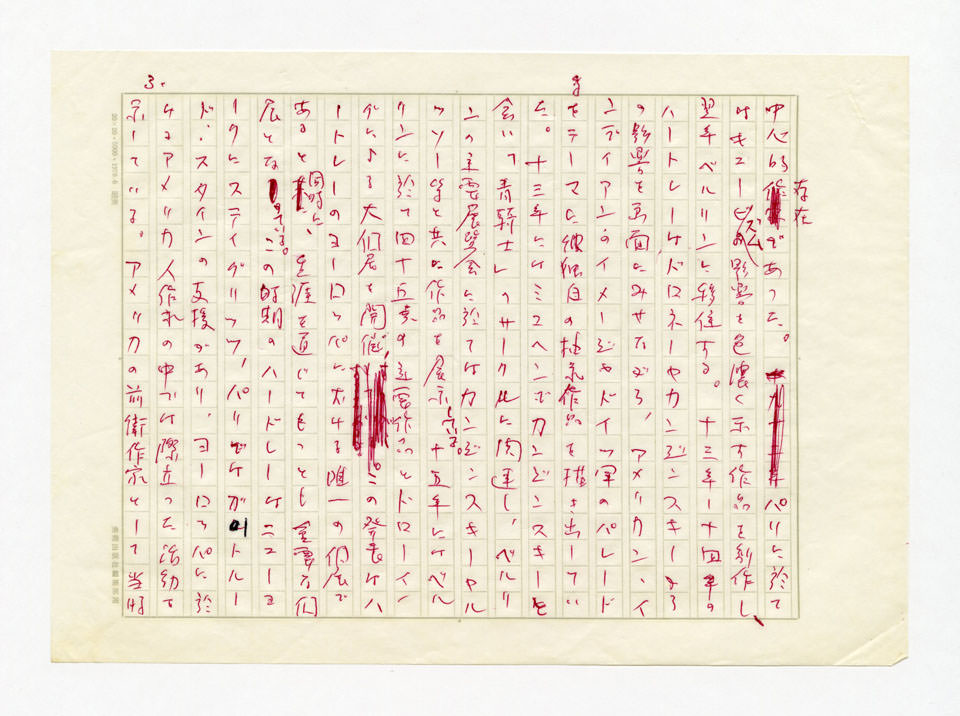 3.
中心的存在であった。パリに於て
はキュービズムの影響を色濃く示す作品を制作し、
翌年ベルリンに移住する。十三年ー十四年の
ハートレーは、ドロネーやカンジンスキーより
の影響を画面にみせながら、アメリカン・イ
ンディアンのイメージやドイツ軍のパレード
をテーマに独自の抽象作品を描き出してい
た。十三年にはミュヘンでカンジンスキーと
会い、青騎士のサークルに関連し、ベルリ
ンの主要展覧会に於てはカンジンスキーやル
ソー等と共に作品を展示する。十五年にはベル
リンに於て四十五点の主要作品とドローイン
グによる大個展を開催。この発表はハ
ートレーのヨーロッパに於ける唯一の個展で
あると同時に、生涯を通じてもっとも重要な個
展となっている。この時期のハートレーはニューヨ
ークにスティグリッツ、パリではガートルー
ド・スタインの支援があり、ヨーロッパに於
けるアメリカ人作家の中では際立った活動を
示している。アメリカの前衛作家として当時